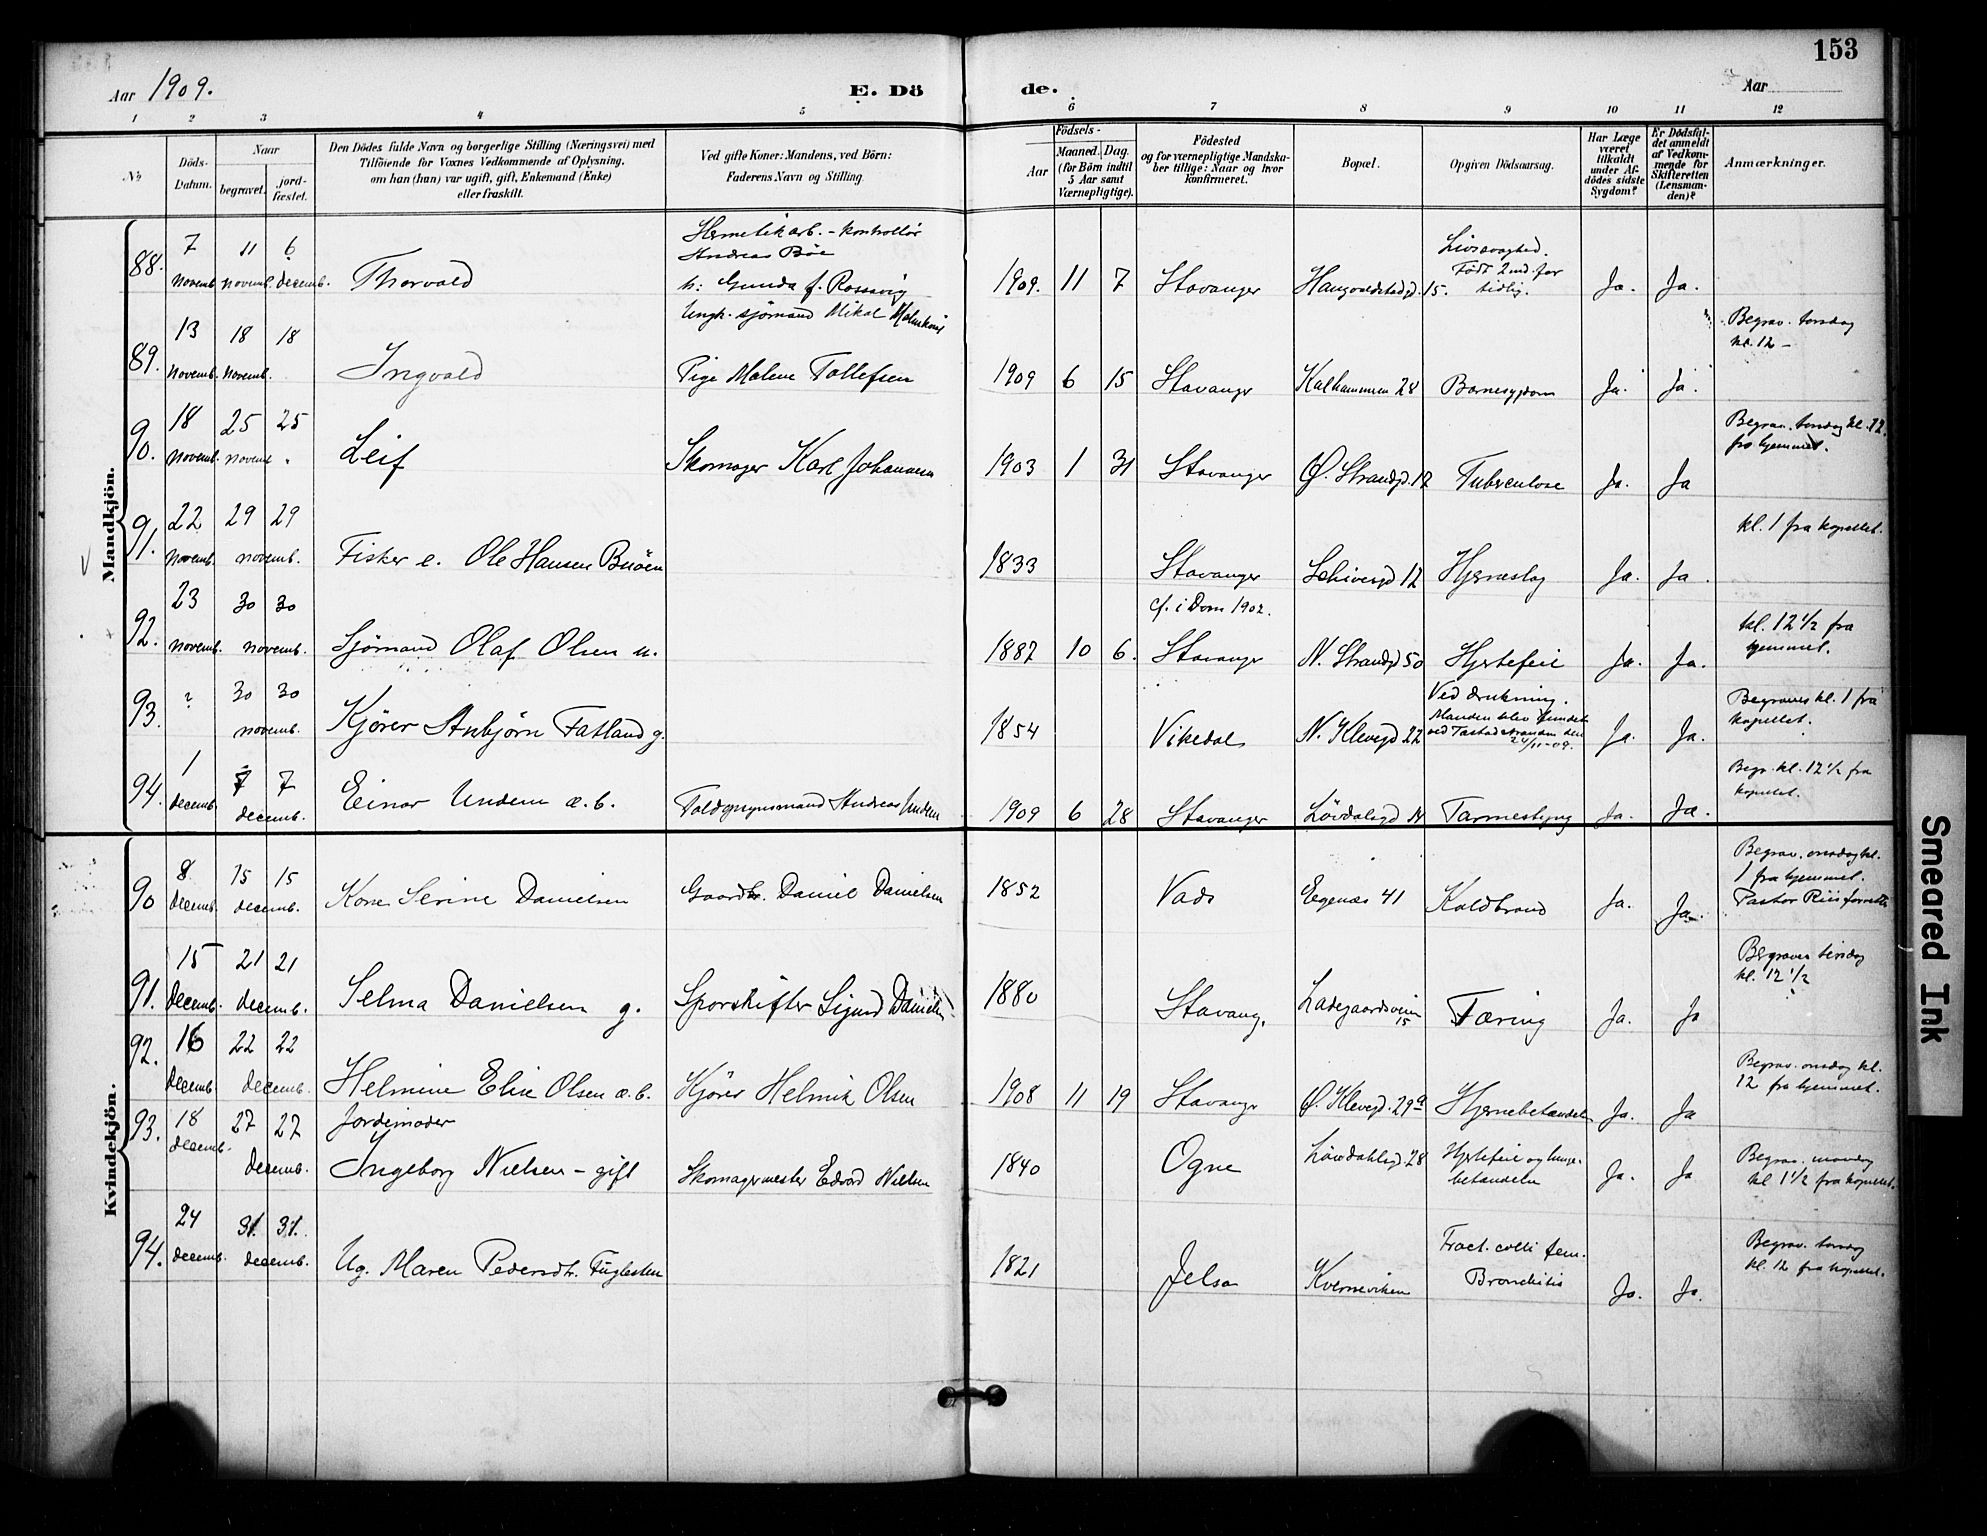 153
Aar 1909.
E. Dö
de.
Aar
1 2 3 4 5 6 7 8 9 10 11 12
№
Döds-Datum.
Naar
begravet.
jord-fæstet.
Den Dödes fulde Navn og borgerlige Stilling (Næringsvei) med
Tilföiende for Voxnes Vedkommende af Oplysning,
om han (hun) var ugift, gift, Enkemand (Enke)
eller fraskilt.
Ved gifte Koner: Mandens, ved Börn:
Faderens Navn og Stilling.
Födsels-
Aar
Maaned. Dag.
(for Börn indtil
5 Aar samt
Værnepligtige).
Födested
og for værnepligtige Mandska-
ber tillige: Naar og hvor
konfirmeret.
Bopæl.
Opgiven Dödsaarsag.
Har Læge
været
tilkaldt
under Af-
dödes sidste
Sygdom?
Er Dödsfal-
det anmeldt
af Vedkom-
mende for
Skifteretten
(Lensman-
den)?
Anmærkninger.
Mandkjön.
88. 7 novemb. 11 novemb. 6 decemb. Thorvald
Hermetikarb. - kontrollør
Andreas Bøe
h: Gunda f. Rossavig
1909. 11 7 Stavanger Haugvaldstadgd. 15.
Livssvaghed.
Født 2 md. for
tidlig.
Ja. Ja.
89. 13 novemb. 18 novemb. 18 Ingvald
Ungk. sjømand Mikal
Pige Malene Tollefsen
1909 6 15 Stavanger Kalhammeren 28 Barnesygdom Ja. Ja.
Begrav. torsdag
kl. 12 -
90. 18 novemb. 25 novemb. 25 Leif Skomager Karl Johannesen
1903 1 31 Stavanger Ø. Strandgd. 12 Tuberculose Ja. Ja
Begrav. torsdag kl. 12.
fra hjemmet.
91. 22 novemb. 29 29 novemb. Fisker e. Ole Hansen Buøen
1833 Stavanger Schivesgd 12 Hjerneslag Ja. Ja.
kl. 1 fra kapellet.
92. 23 novemb. 30 30 novemb. Sjømand Olaf Olsen u.
1887 10 6. cf. i Dom 1902. Stavanger N. Strandgd 50 Hjertefeil Ja. Ja.
kl. 12 1/2 fra
hjemmet.
93. ? 30 30 novemb. Kjører Anbjørn Fatland g.
1854 Vikedal N. Klevegd 22
Ved drukning.
Manden blev fundet
ved Tastadstranden den
24/11-09.
Ja. Ja.
Begraves kl. 1 fra
kapellet.
94. 1 decemb. 7 7 decemb. Einar Undem æ.b. Toldopsynsmand Andreas Undem
1909 6 28 Stavanger Løvdalsgd 14 Tarmeslyng Ja. Ja.
Begr. kl. 12 1/2 fra
kapellet.
Kvindekjön.
90 8 decemb. 15 15 decemb. Kone Serine Danielsen Gaardbr. Daniel Danielsen
1852 Vads Egenæs 41 Koldbrand Ja. Ja.
Begrav. onsdag kl.
1 fra hjemmet.
Pastor Riis forretter
91. 15 decemb. 21 21 decemb. Selma Danielsen g. Sporskifter Sigurd Danielsen
1880 Stavang. Ladegaardsveien 15 Tæring Ja. Ja
Begraves tirsdag
kl. 12 1/2
92. 16 decemb. 22 22 decemb. Helmine Elise Olsen æ.b. Kjører Helmik Olsen
1908 11 19 Stavanger Ø. Klevegd. 29a Hjernebetændelse Ja. Ja
Begrav. onsdag kl.
12 fra hjemmet.
93. 18 decemb. 27 27 decemb. Jordemoder
Ingeborg Nielsen - gift Skomagermester Edvard Nielsen
1840 Ogne Løvdahlsgd 28
Hjertefeil og lunge-
betændelse
Ja. Ja
Begrav. mandag
kl 1 1/2 fra kapellet.
94. 24 decemb. 31. 31. decemb. Ug. Maren Pedersdtr. Fuglesten
1821 Jelsa Kverneviken
Fract. colli fem.
Bronchitis
Ja. Ja.
Begrav. torsdag
kl. 12 fra kapellet.
Smeared Ink